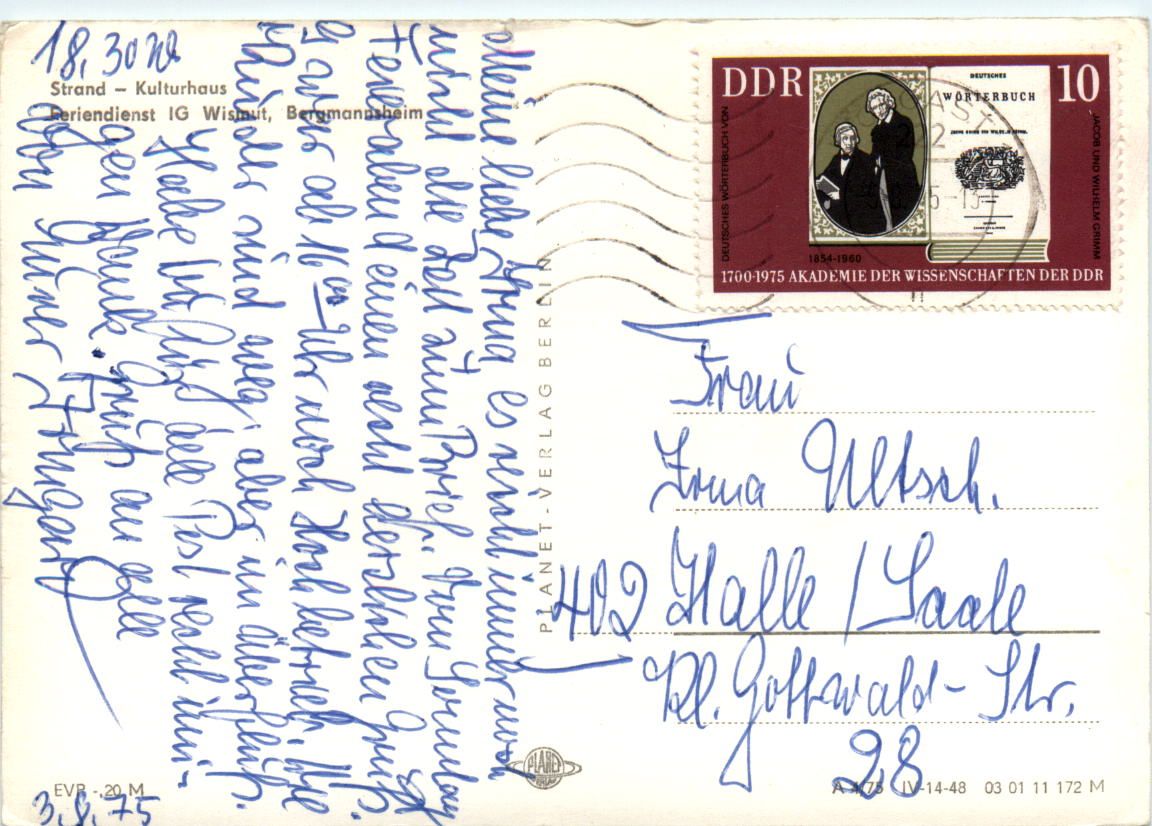 18.30 Uhr
Strand – Kulturhaus
Feriendienst IG Wismut, Bergmannsheim
Meine liebe Irma, es reicht immer noch
nicht die Zeit zum Brief. Vom Sonntag
Feierabend einen recht herzlichen Gruß.
war ab 16 00 - Uhr noch Hochbetrieb. Die
Kinder sind weg, aber im
Habe für alle Post recht inni-
gen Dank. Gruß an alle
Irmgard
EVP -.20 M
3.8.75
PLANET-VERLAG BERLIN
PLANET
VERLAG
DDR
10
DEUTSCHES WÖRTERBUCH VON
JACOB UND WILHELM GRIMM
DEUTSCHES
WÖRTERBUCH
1854-1960
1700-1975 AKADEMIE DER WISSENSCHAFTEN DER DDR
Frau
Irma Ultsch.
402 Halle / Saale
Kl. Gottwald- Str.
28
A 4/75 IV-14-48 03 01 11 172 M